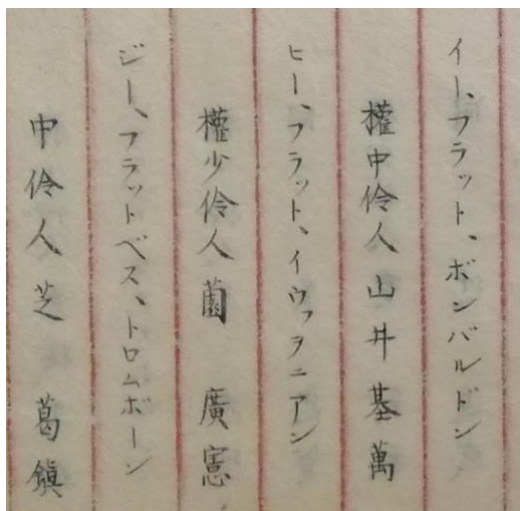 イー、フラット、ボンバルドン
權中伶人山井基萬
ヒー、フラット、イウフヲニアン
權少伶人薗 廣憲
ジー、フラットベス、トロムボーン
中伶人芝 葛鎮